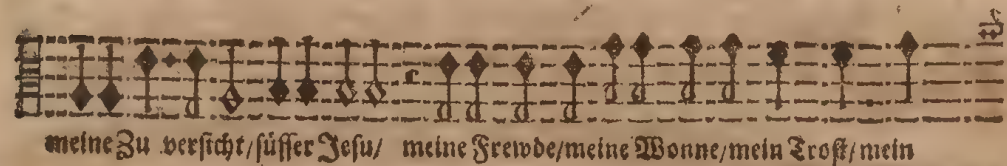 meine Zu versicht/süsser Jesu/ meine Frewde/meine Wonne/mein Trost/mein